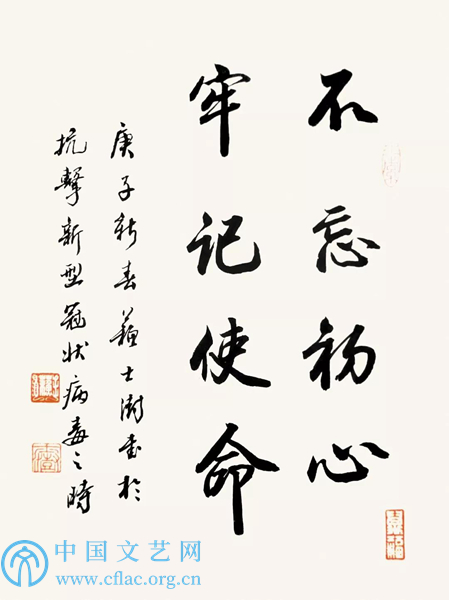 不忘初心
牢记使命
庚子新春苏士澍书於
抗擊新型冠状病毒之時
中国文艺网
www.cflac.org.cn